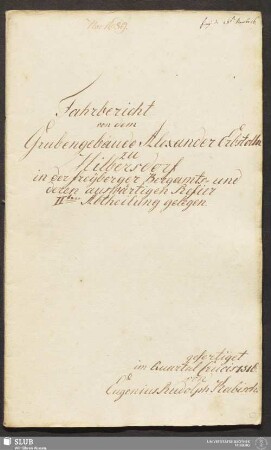 Fahrbericht
von dem
Grubengebäude Alexander Erbstolln
zu
Hilbersdorf
in der freyberger Bergamts- und
deren auswärtigen Refier
IIter Abtheilung gelegen.
gefertiget
im Quartal Crucis 1816
von
Eugenius Rudolph
SLUB